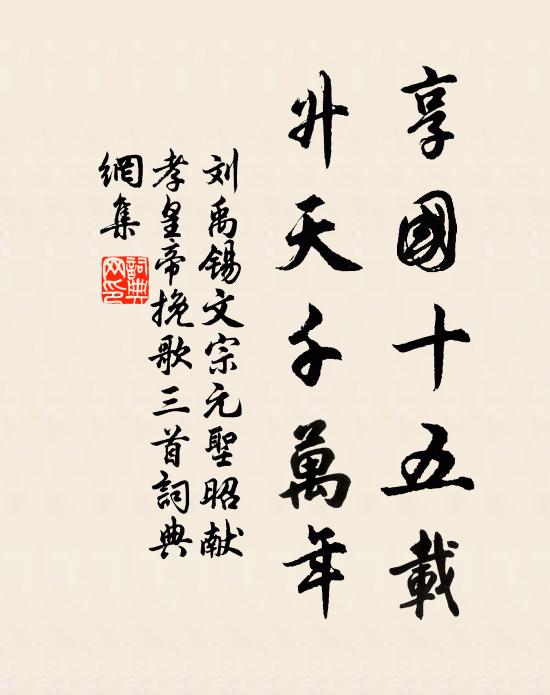 享國十五載
升天千萬年
刘禹锡文宗元聖昭献
孝皇帝挽歌三首詞典
網集
詞典網印